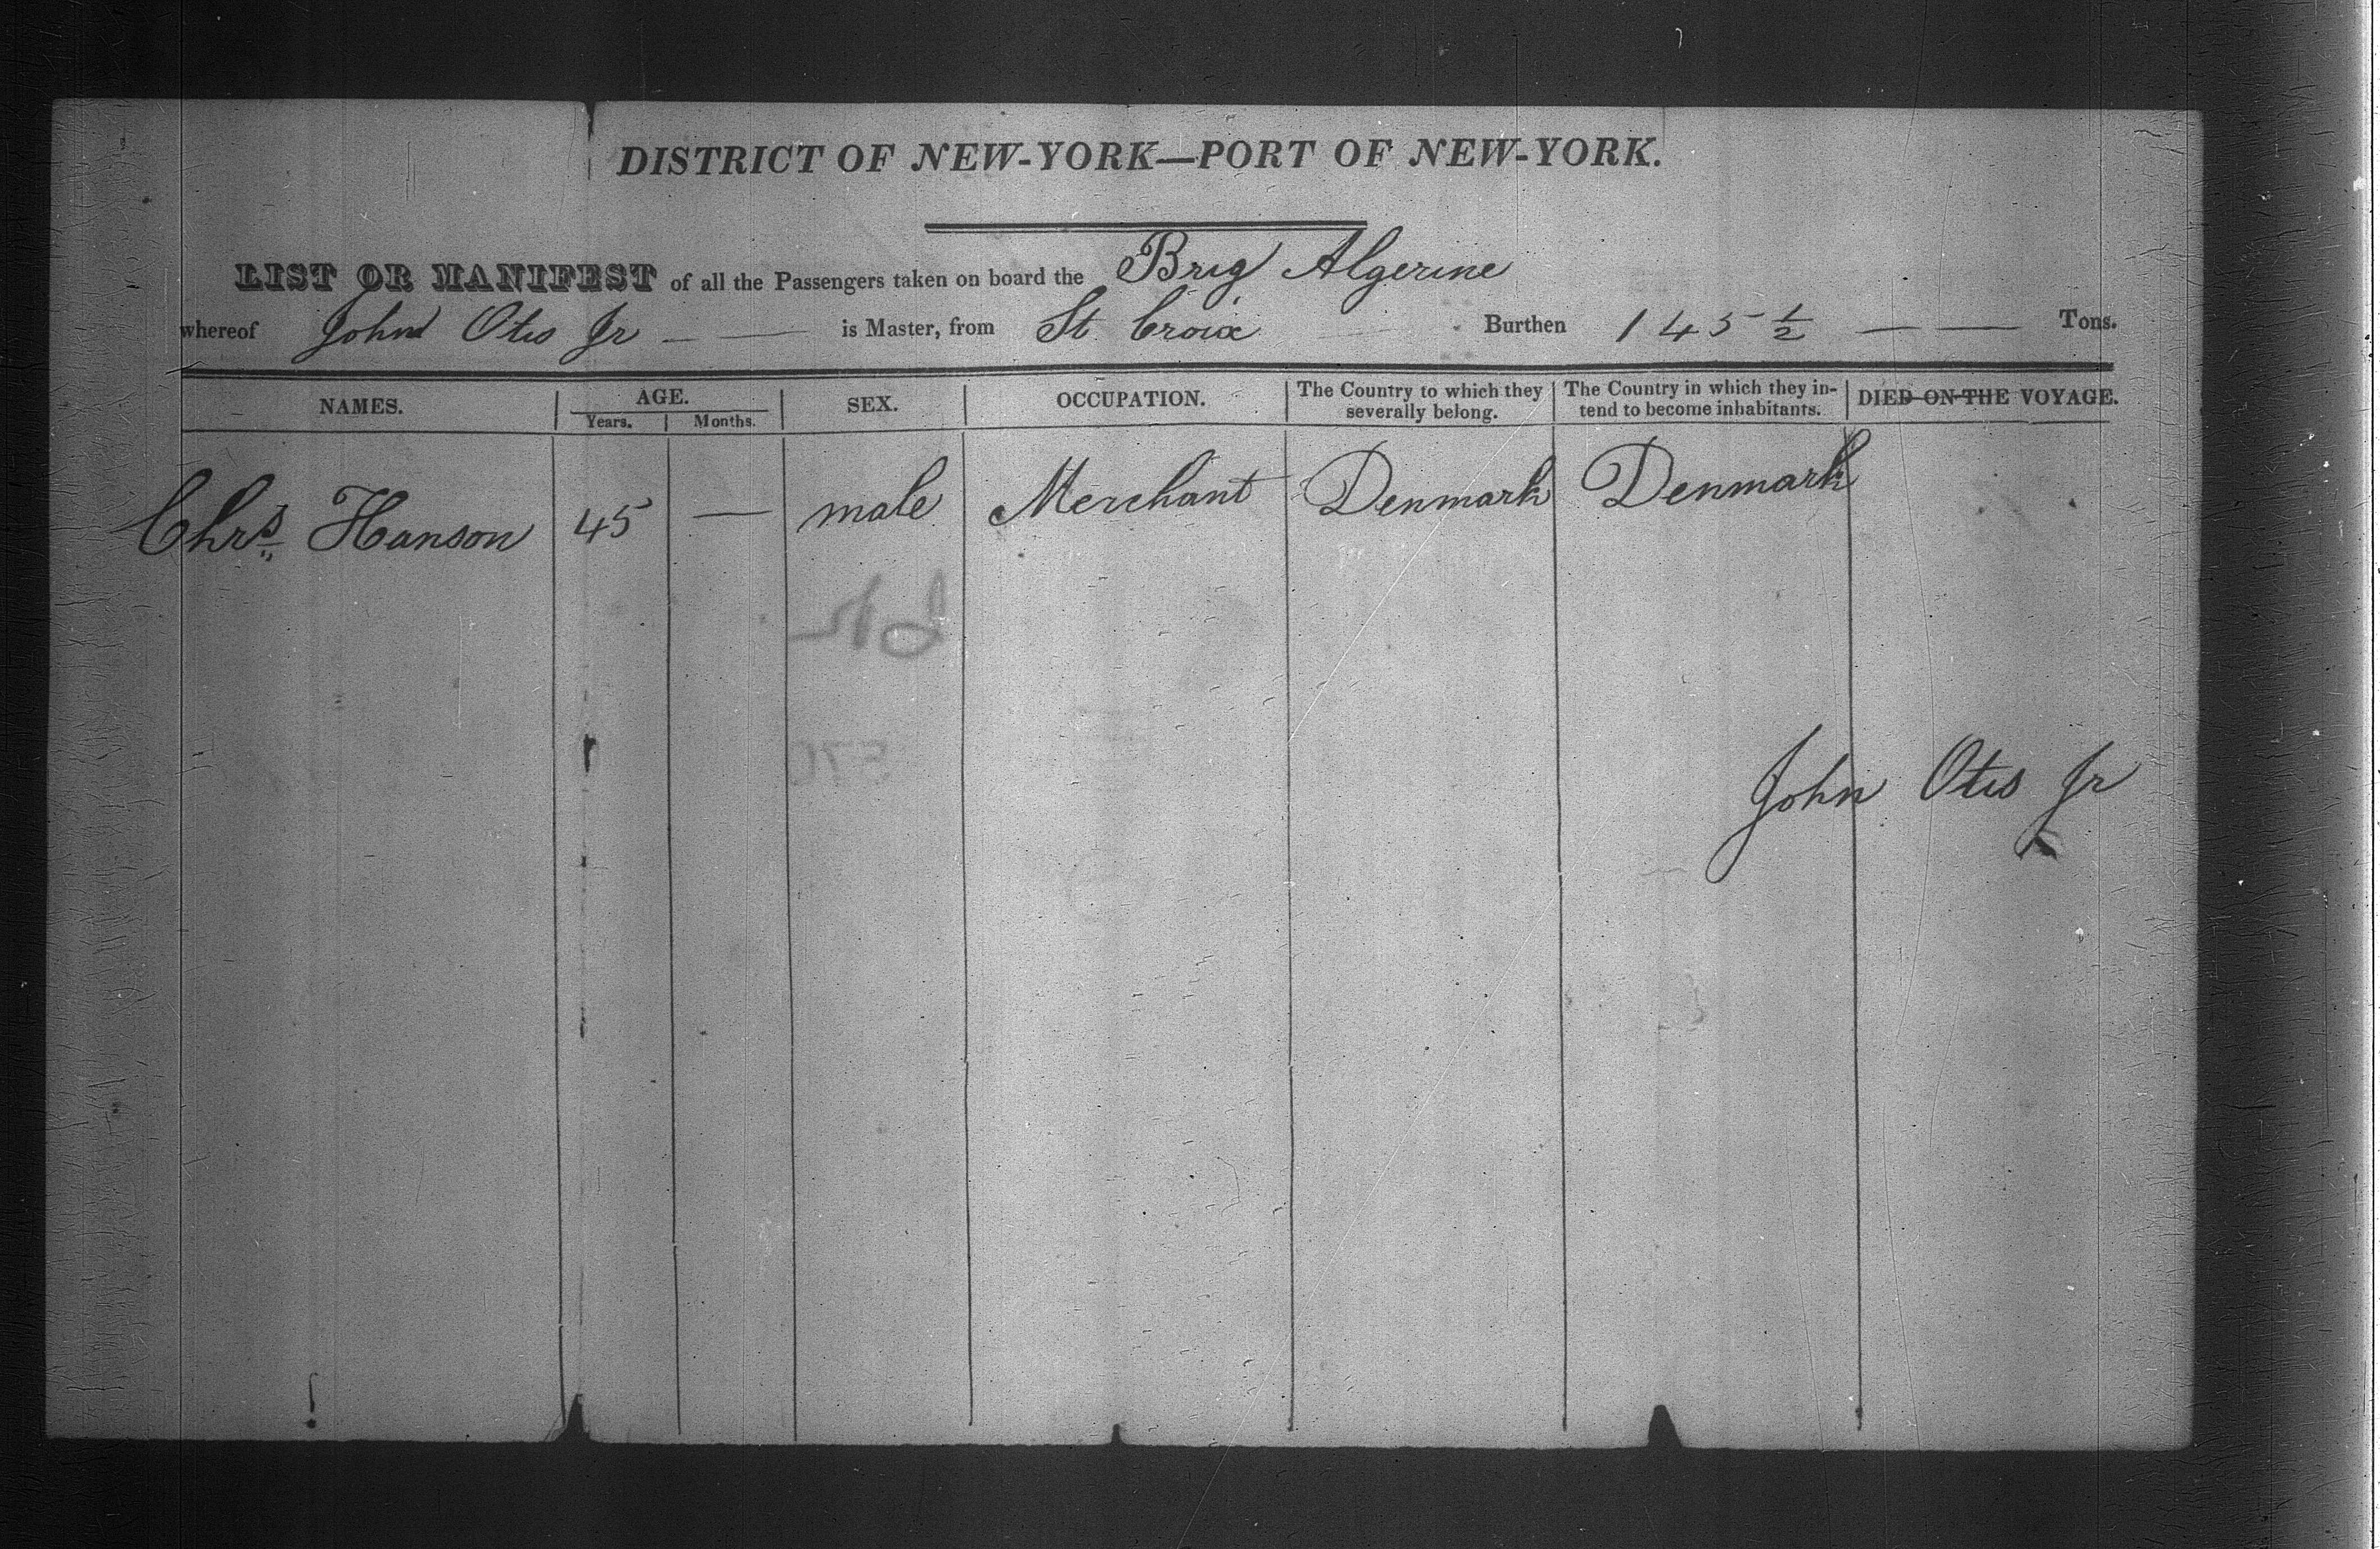 DISTRICT OF NEW-YORK—PORT OF NEW-YORK.
LIST OR MANIFEST of all the Passengers taken on board the Brig Algerine
whereof John Otis Jr — — is Master, from St. Croix Burthen 145 1/2 — — Tons.
NAMES. AGE. SEX. OCCUPATION. The Country to which they severally belong. The Country in which they intend to become inhabitants. DIED ON THE VOYAGE.
Years. Months.
Chrs Hanson 45 — male Merchant Denmark Denmark
John Otis Jr